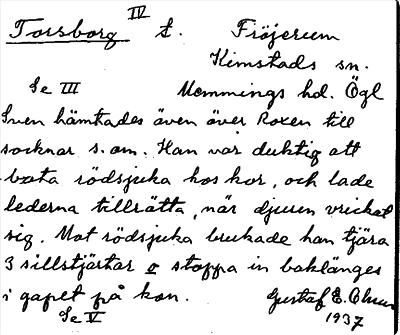 Torsborg IV t. Fröjerum
Kimstads sn.
Se III Memmings hd. Ögl
Sven hämtades även över Roxen till
socknar s. om. Han var duktig att
bota rödsjuka hos kor, och lade
lederna tillrätta, när djuren vrickat
sig. Mot rödsjuka brukade han tjära
3 sillstjärtar o stoppa in baklänges
i gapet på kon. Gustaf E. Olsson
Se V 1937